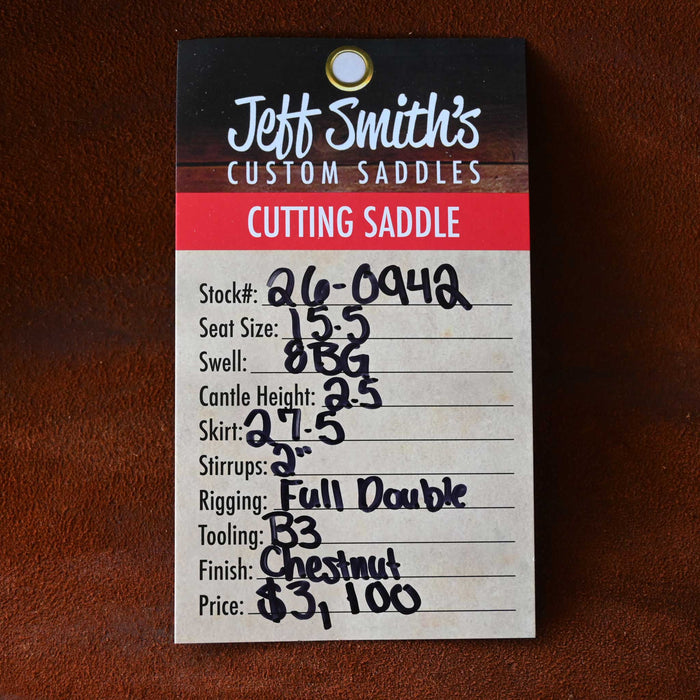 Jeff Smith's
CUSTOM SADDLES
CUTTING SADDLE
Stock#: 26-0942
Seat Size: 15.5
Swell: 8BG
Cantle Height: 2.5
Skirt: 27.5
Stirrups: 2"
Rigging: Full Double
Tooling: B3
Finish: Chestnut
Price: $3,100